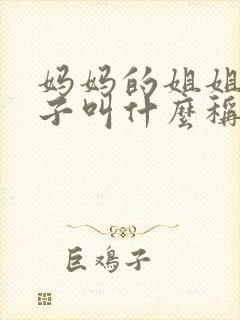 妈妈的姐姐
子叫什麼稱
巨鸡子